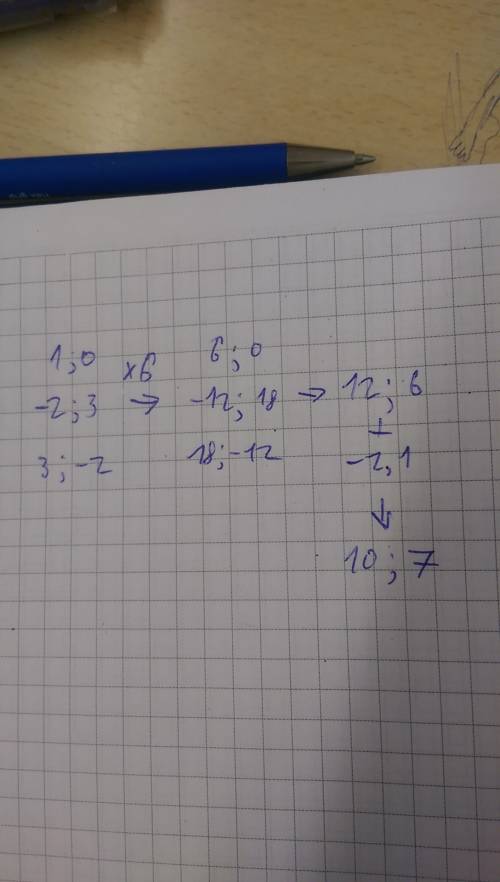 1;0 x6 6;0
-2;3 → -12;18 → 12;6
3;-2 18;-12 +
-2,1
↓
10;7